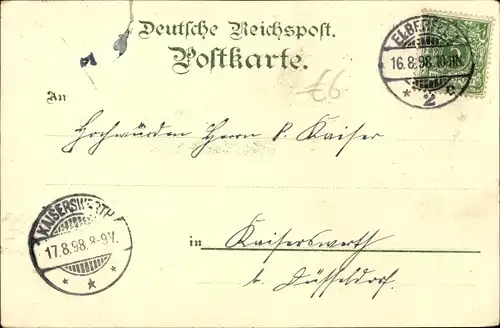 Deutsche Reichspost.
Postkarte.
ELBERFELD
16.8.98.10-11N.
* 2 c
£6
An
Hochwürden Herrn P. Kaiser
KAISERSWERTH
17.8.98.8-9V.
in Kaiserswerth
b. Düsseldorf.